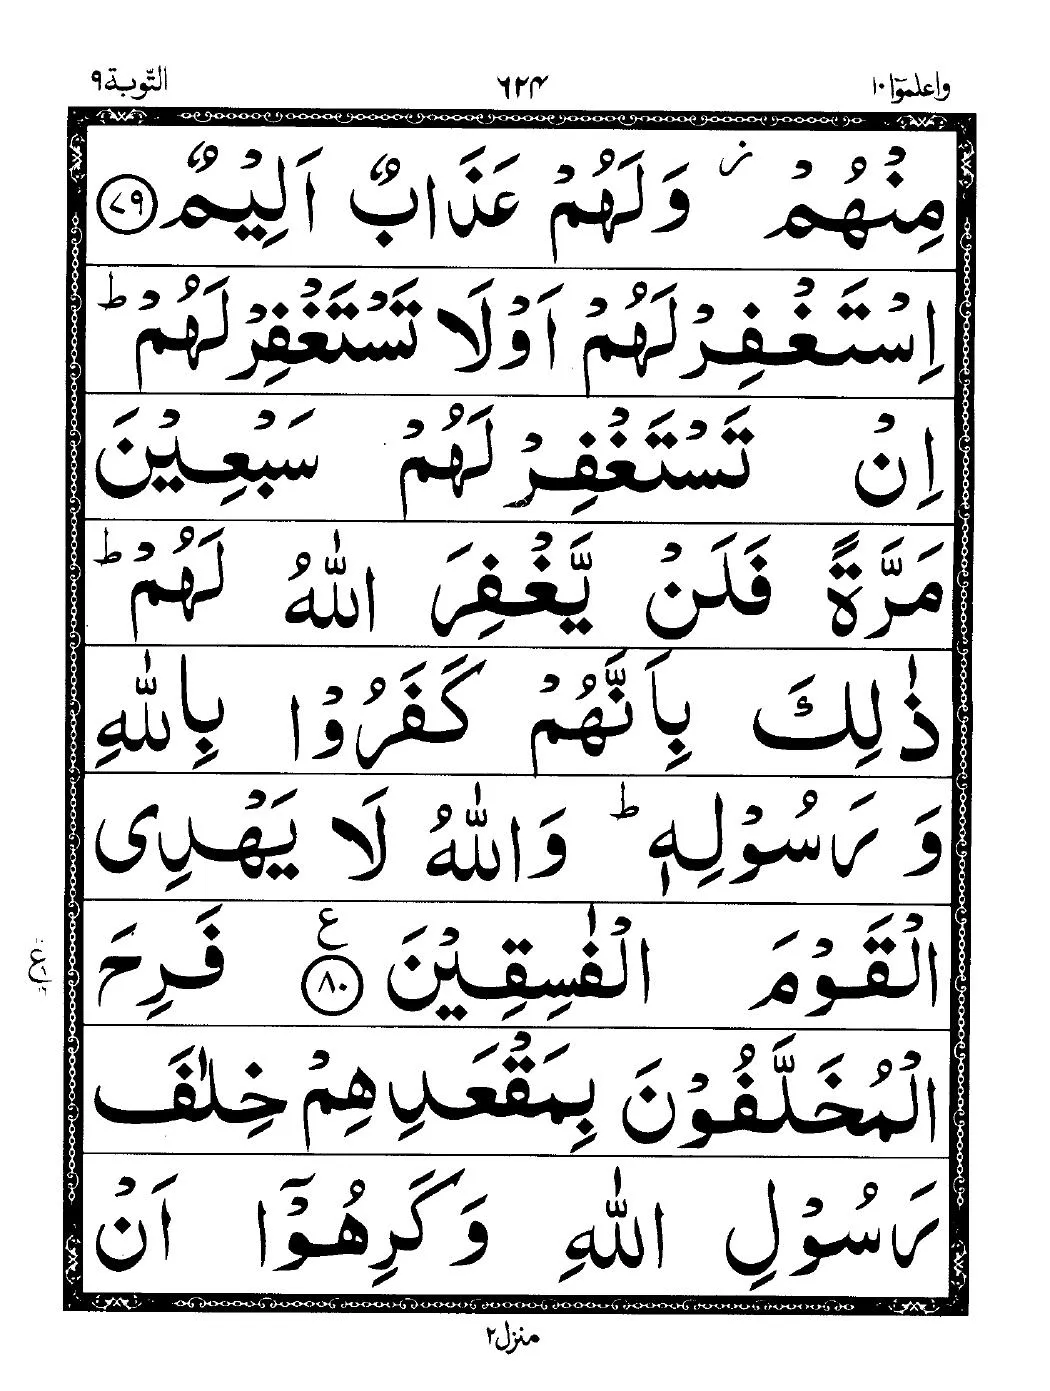 واعلموٓا ١٠ ٦٢۴ التّوبة ٩
مِنْهُمْ ز وَلَهُمْ عَذَابٌ اَلِيْمٌ ۝٧٩
اِسْتَغْفِرْ لَهُمْ اَوْ لَا تَسْتَغْفِرْ لَهُمْ ؕ
اِنْ تَسْتَغْفِرْ لَهُمْ سَبْعِيْنَ
مَرَّةً فَلَنْ يَّغْفِرَ اللّٰهُ لَهُمْ ؕ
ذٰلِكَ بِاَنَّهُمْ كَفَرُوْا بِاللّٰهِ
وَ رَسُوْلِهٖ ؕ وَاللّٰهُ لَا يَهْدِى
الْقَوْمَ الْفٰسِقِيْنَ ۝٨٠ ع فَرِحَ
الْمُخَلَّفُوْنَ بِمَقْعَدِهِمْ خِلٰفَ
رَسُوْلِ اللّٰهِ وَكَرِهُوْٓا اَنْ
منزل ٢